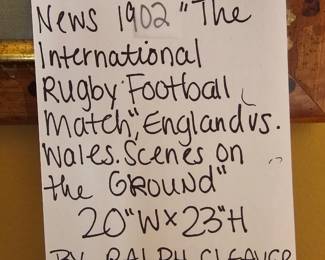 News 1902 "The
International
Rugby Football
Match", England vs.
Wales. Scenes on
the Ground"
20"W x 23"H
BY RALPH CLEAVER